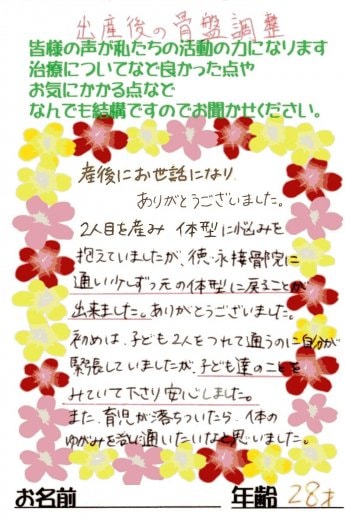 出産後の骨盤調整
皆様の声が私たちの活動の力になります
治療についてなど良かった点や
お気にかかる点など
なんでも結構ですのでお聞かせください。
産後にお世話になり
ありがとうございました。
2人目を産み 体型に悩みを
抱えていましたが、徳・永接骨院に
通い少しずつ元の体型に戻ることが
出来ました。ありがとうございました。
初めは、子ども2人をつれて通うのに自分が
緊張していましたが、子ども達のことを
みていて下さり安心しました。
また、育児が落ちついたら、体の
ゆがみを治しに通いたいなと思いました。
お名前 年齢 28才